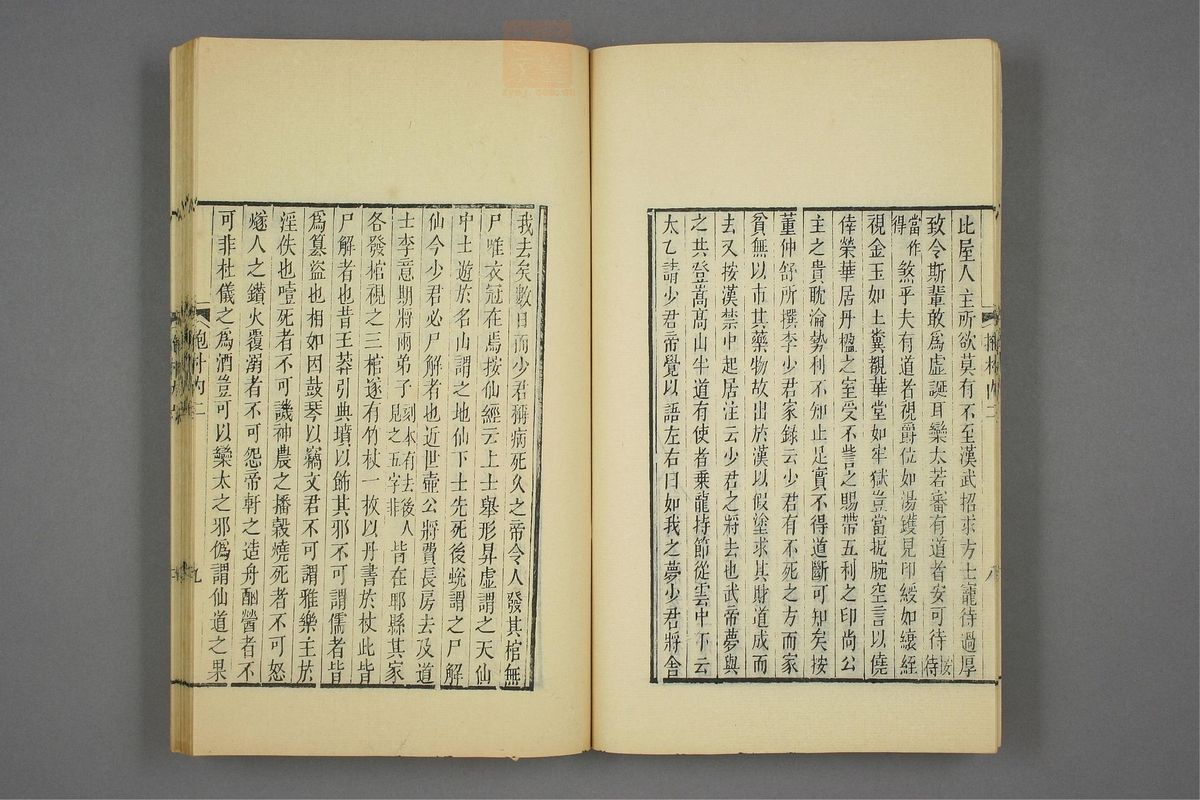 比屋人主所欲莫有不至漢武招求方士寵待過厚
致令斯輩敢爲虛誕耳欒太若審有道者安可待按待
當作得煞乎夫有道者視爵位如湯鑊見印綬如縗絰
視金玉如土糞覩華堂如牢獄豈當扼腕空言以僥
倖榮華居丹楹之室受不訾之賜帶五利之印尚公
主之貴耽淪勢利不知止足實不得道斷可知矣按
董仲舒所撰李少君家錄云少君有不死之方而家
貧無以市其藥物故出於漢以假塗求其財道成而
去又按漢禁中起居注云少君之將去也武帝夢與
之共登嵩髙山半道有使者乗龍持節從雲中下云
太乙請少君帝覺以語左右曰如我之夢少君將舍
我去矣數日而少君稱病死久之帝令人發其棺無
尸唯衣冠在焉按仙經云上士舉形昇虛謂之天仙
中士遊於名山謂之地仙下士先死後蛻謂之尸解
仙今少君必尸解者也近世壺公將費長房去及道
士李意期將兩弟子刻本有去後人見之五字非皆在郫縣其家
各發棺視之三棺遂有竹杖一枚以丹書於杖此皆
尸解者也昔王莽引典墳以飾其邪不可謂儒者皆
爲簒盜也相如因鼓琴以竊文君不可謂雅樂主於
淫佚也噎死者不可譏神農之播穀燒死者不可怒
燧人之鑽火覆溺者不可怨帝軒之造舟酗醟者不
可非杜儀之爲酒豈可以欒太之邪僞謂仙道之果